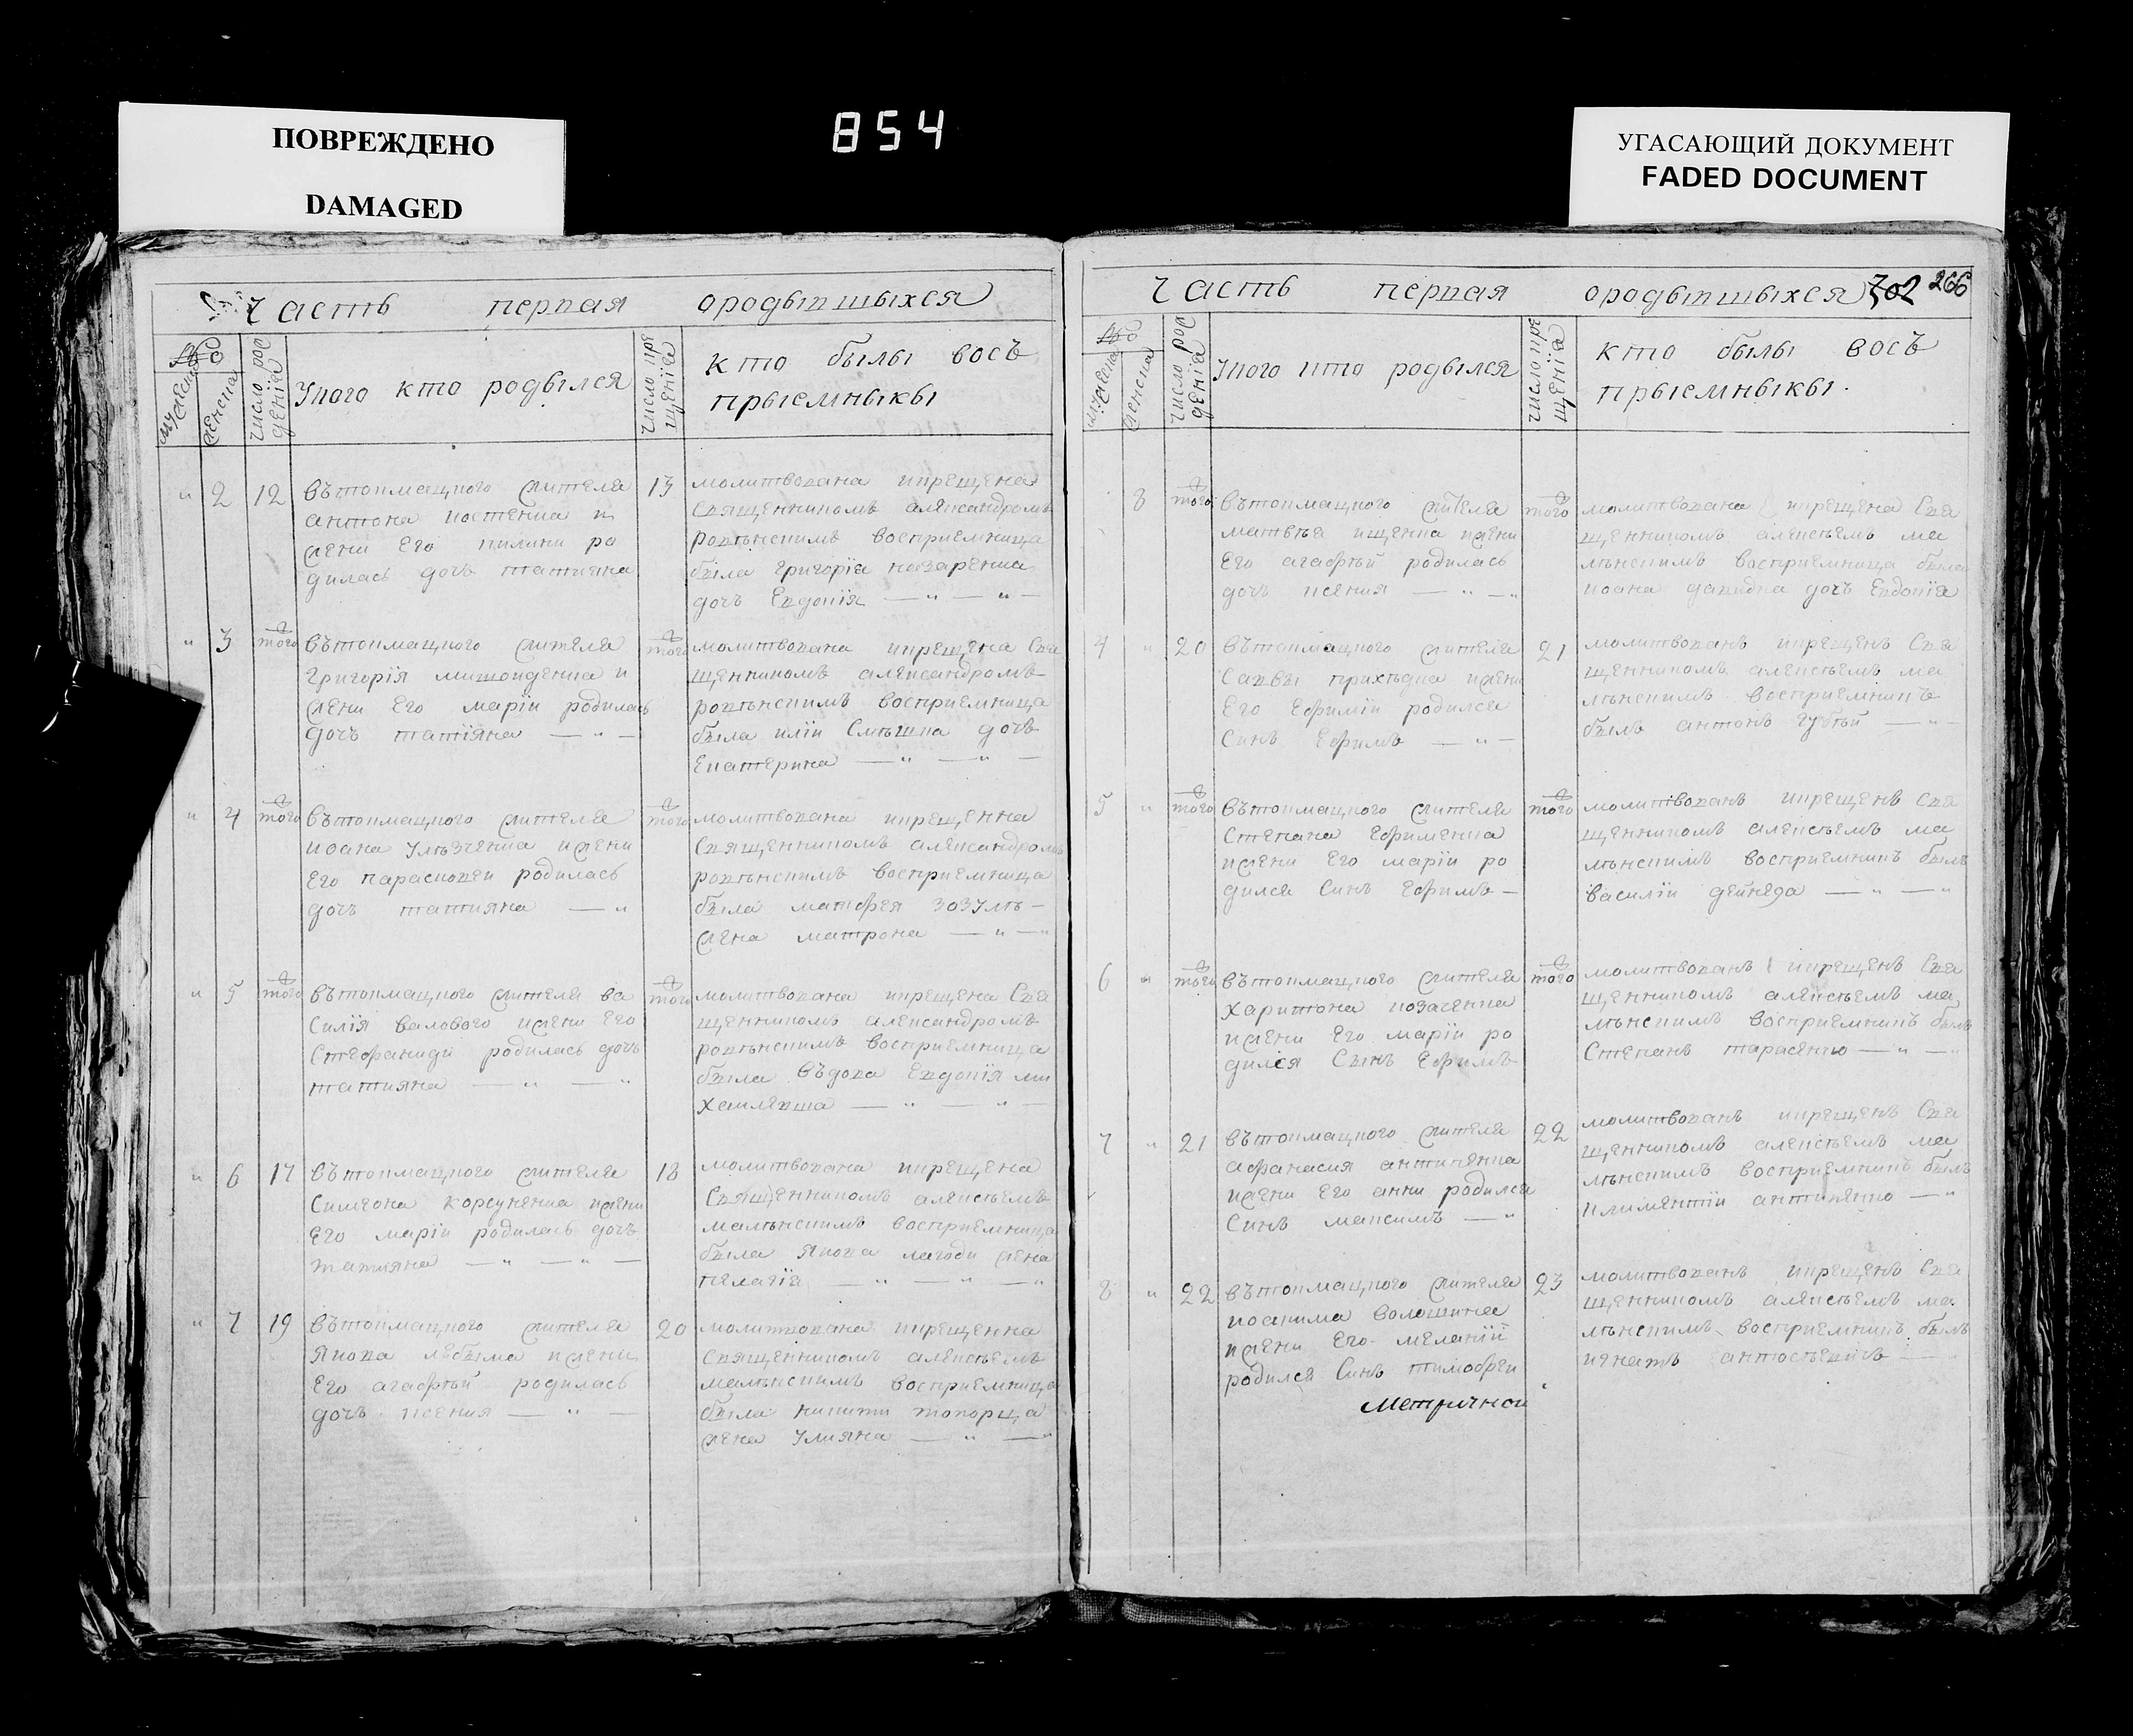 ПОВРЕЖДЕНО
DAMAGED
854
УГАСАЮЩИЙ ДОКУМЕНТ
FADED DOCUMENT
Часть первая ородывшыхся
число рождения
Укого кто родывся
число крещенїя
кто былы восъ
прыемныкы
" 2 12
вътокмацкого жителя
антона костенка и
жени Его килини ро
дилась дочь татияна
13
молитвована икрещена
Священникомъ александромъ
ровѣнскимъ восприемница
была григорїя назаренка
дочъ Евдокїя — " — " —
" 3 того
вътокмацкого жителя
григорїя
жени Его марїи родилась
дочъ татїяна — " —
того
молитвована икрещена Свя
щенникомъ александромъ
ровѣнскимъ восприемница
была илїи Смѣшка дочъ
Екатерина — " — " —
" 4 того
вътокмацкого жителя
иоана ижени
Его парасковеи родилась
дочъ татияна — "
того
молитвована икрещенна
Священникомъ александромъ
ровѣнскимъ восприемница
была матфея зозулѣ —
жена матрона — " — "
" 5 того
вътокмацкого жителя ва
Силїя валового ижени Его
Стефаниди родилась дочъ
татияна — " — "
того
молитвована икрещена Свя
щенникомъ александромъ
ровѣнскимъ восприемница
была въдова Евдокїя ми
хаилевша — " — " —
" 6 17
вътокмацкого жителя
Симеона корсуненка ижени
Его марїи родилась дочъ
татияна — " — " —
18
молитвована икрещена
Священникомъ алексѣемъ
малѣнскимъ восприемница
была якова лагоди жена
пелагїя — " — " — "
" 7 19
вътокмацкого жителя
якова ижени
Его агафїй родилась
дочъ ксения — " —
20
молитвована икрещенна
Священникомъ алексѣемъ
малѣнскимъ восприемница
была никити топорца
жена Улияна — " — "
Часть первая ородывшыхся 702 266
число рождения
Укого кто родывся
число крещенїя
кто былы восъ
прыемныкы.
8 того
вътокмацкого жителя
матвѣя ищенка ижени
Его агафїй родилась
дочъ ксения — " — "
того
молитвована икрещена Свя
щенникомъ алексѣемъ ма
лѣнскимъ восприемница была
иоана давидка дочъ Евдокїя
4 " 20
вътокмацкого жителя
Саввы прихѣдка ижени
Его Ефимїи родился
Синъ Ефимъ — " —
21
молитвованъ икрещенъ Свя
щенникомъ алексѣемъ ма
лѣнскимъ восприемникъ
былъ антонъ — " —
5 " того
вътокмацкого жителя
Степана Ефименка
ижени Его марїи ро
дился Синъ Ефимъ —
того
молитвованъ икрещенъ Свя
щенникомъ алексѣемъ ма
лѣнскимъ восприемникъ былъ
василїи дейнега — " — "
6 " того
вътокмацкого жителя
харитона козаченка
ижени Его марїи ро
дился Сынъ Ефимъ
того
молитвованъ икрещенъ Свя
щенникомъ алексѣемъ ма
лѣнскимъ восприемникъ былъ
Степанъ тарасенко — " —
7 " 21
вътокмацкого жителя
афанасия антипенка
ижени Его анни родился
Синъ максимъ — "
22
молитвованъ икрещенъ Свя
щенникомъ алексѣемъ ма
лѣнскимъ восприемникъ былъ
климентїи антипенко — "
8 " 22
вътокмацкого жителя
иоакима волошина
ижени Его меланїи
родился Синъ тимофеи
23
молитвованъ икрещенъ Свя
щенникомъ алексѣемъ ма
лѣнскимъ восприемникъ былъ
игнатъ
Метричной